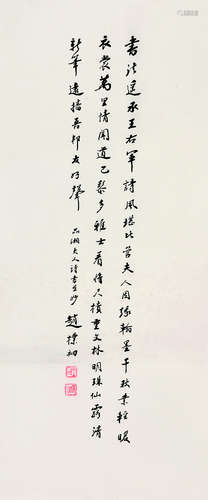 書法遙承王右軍詩風堪比管夫人因緣翰墨千秋業輕暖
衣裳萬里情聞道巴黎多雅士看傳尺牘重文林明珠仙露清
新筆遠播吾邦友好聲
夫人詩書並妙
趙樸初